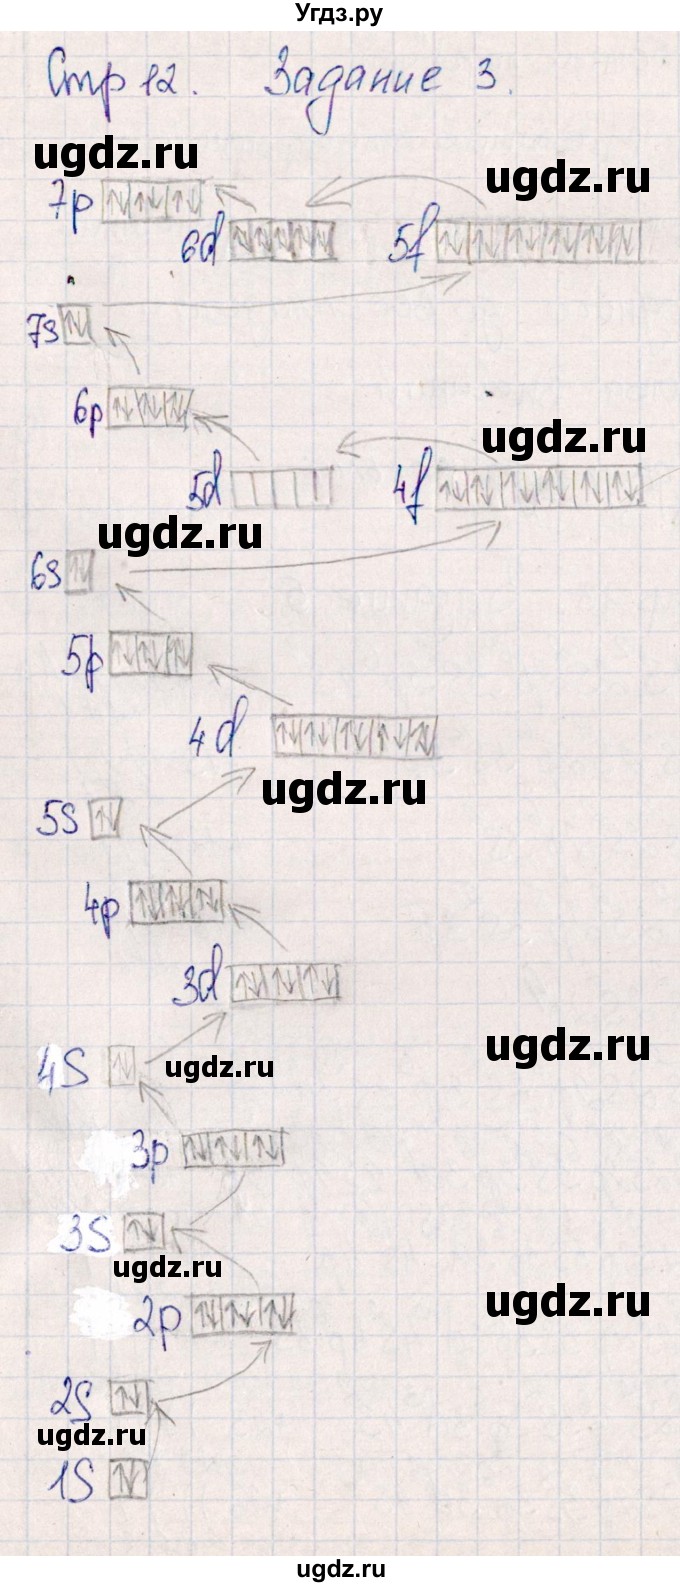 Угдз.ру
Стр 12. Задание 3.
ugdz.ru
ugdz.ru
7p
6d
5f
7s
6p
ugdz.ru
5d
4f
ugdz.ru
6s
5p
4d
ugdz.ru
5s
4p
3d
ugdz.ru
4S
ugdz.ru
3p
3S
ugdz.ru
ugdz.ru
2p
2S
ugdz.ru
1S
ugdz.ru